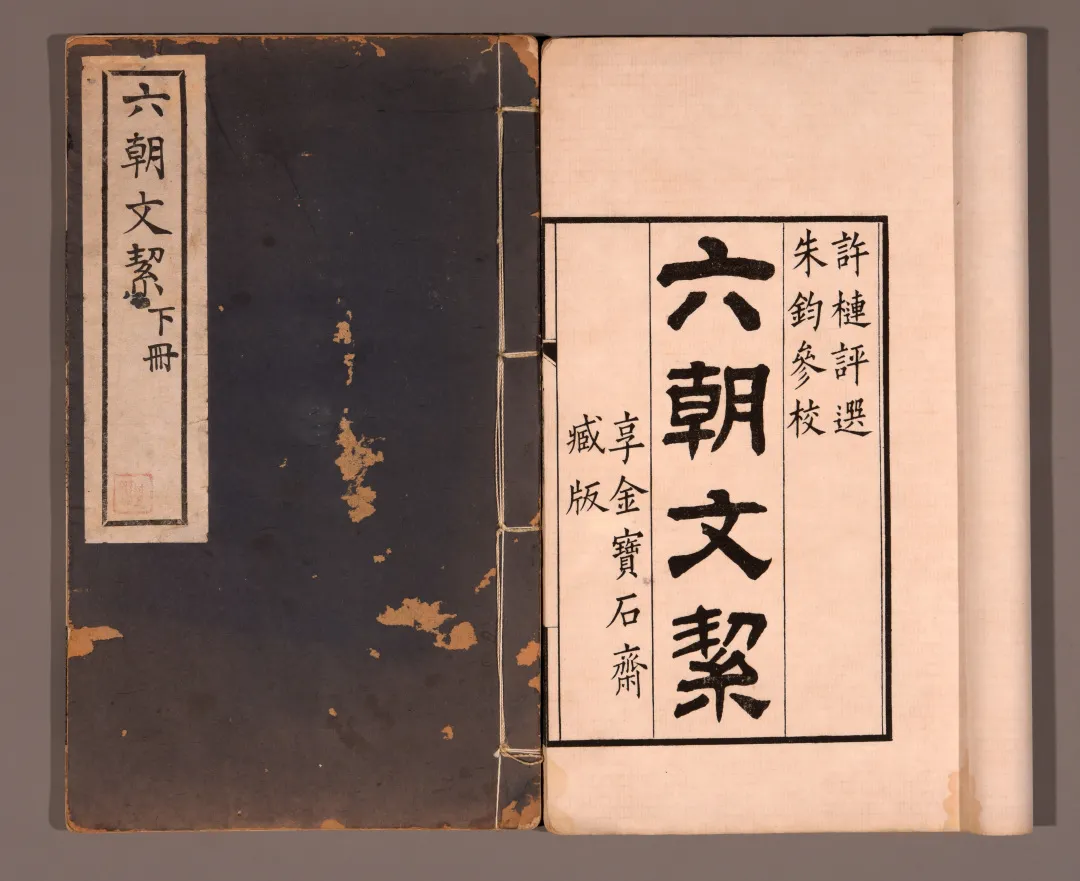 六朝文絜
下冊
許槤評選
朱鈞參校
六朝文絜
享金寶石齋
臧版